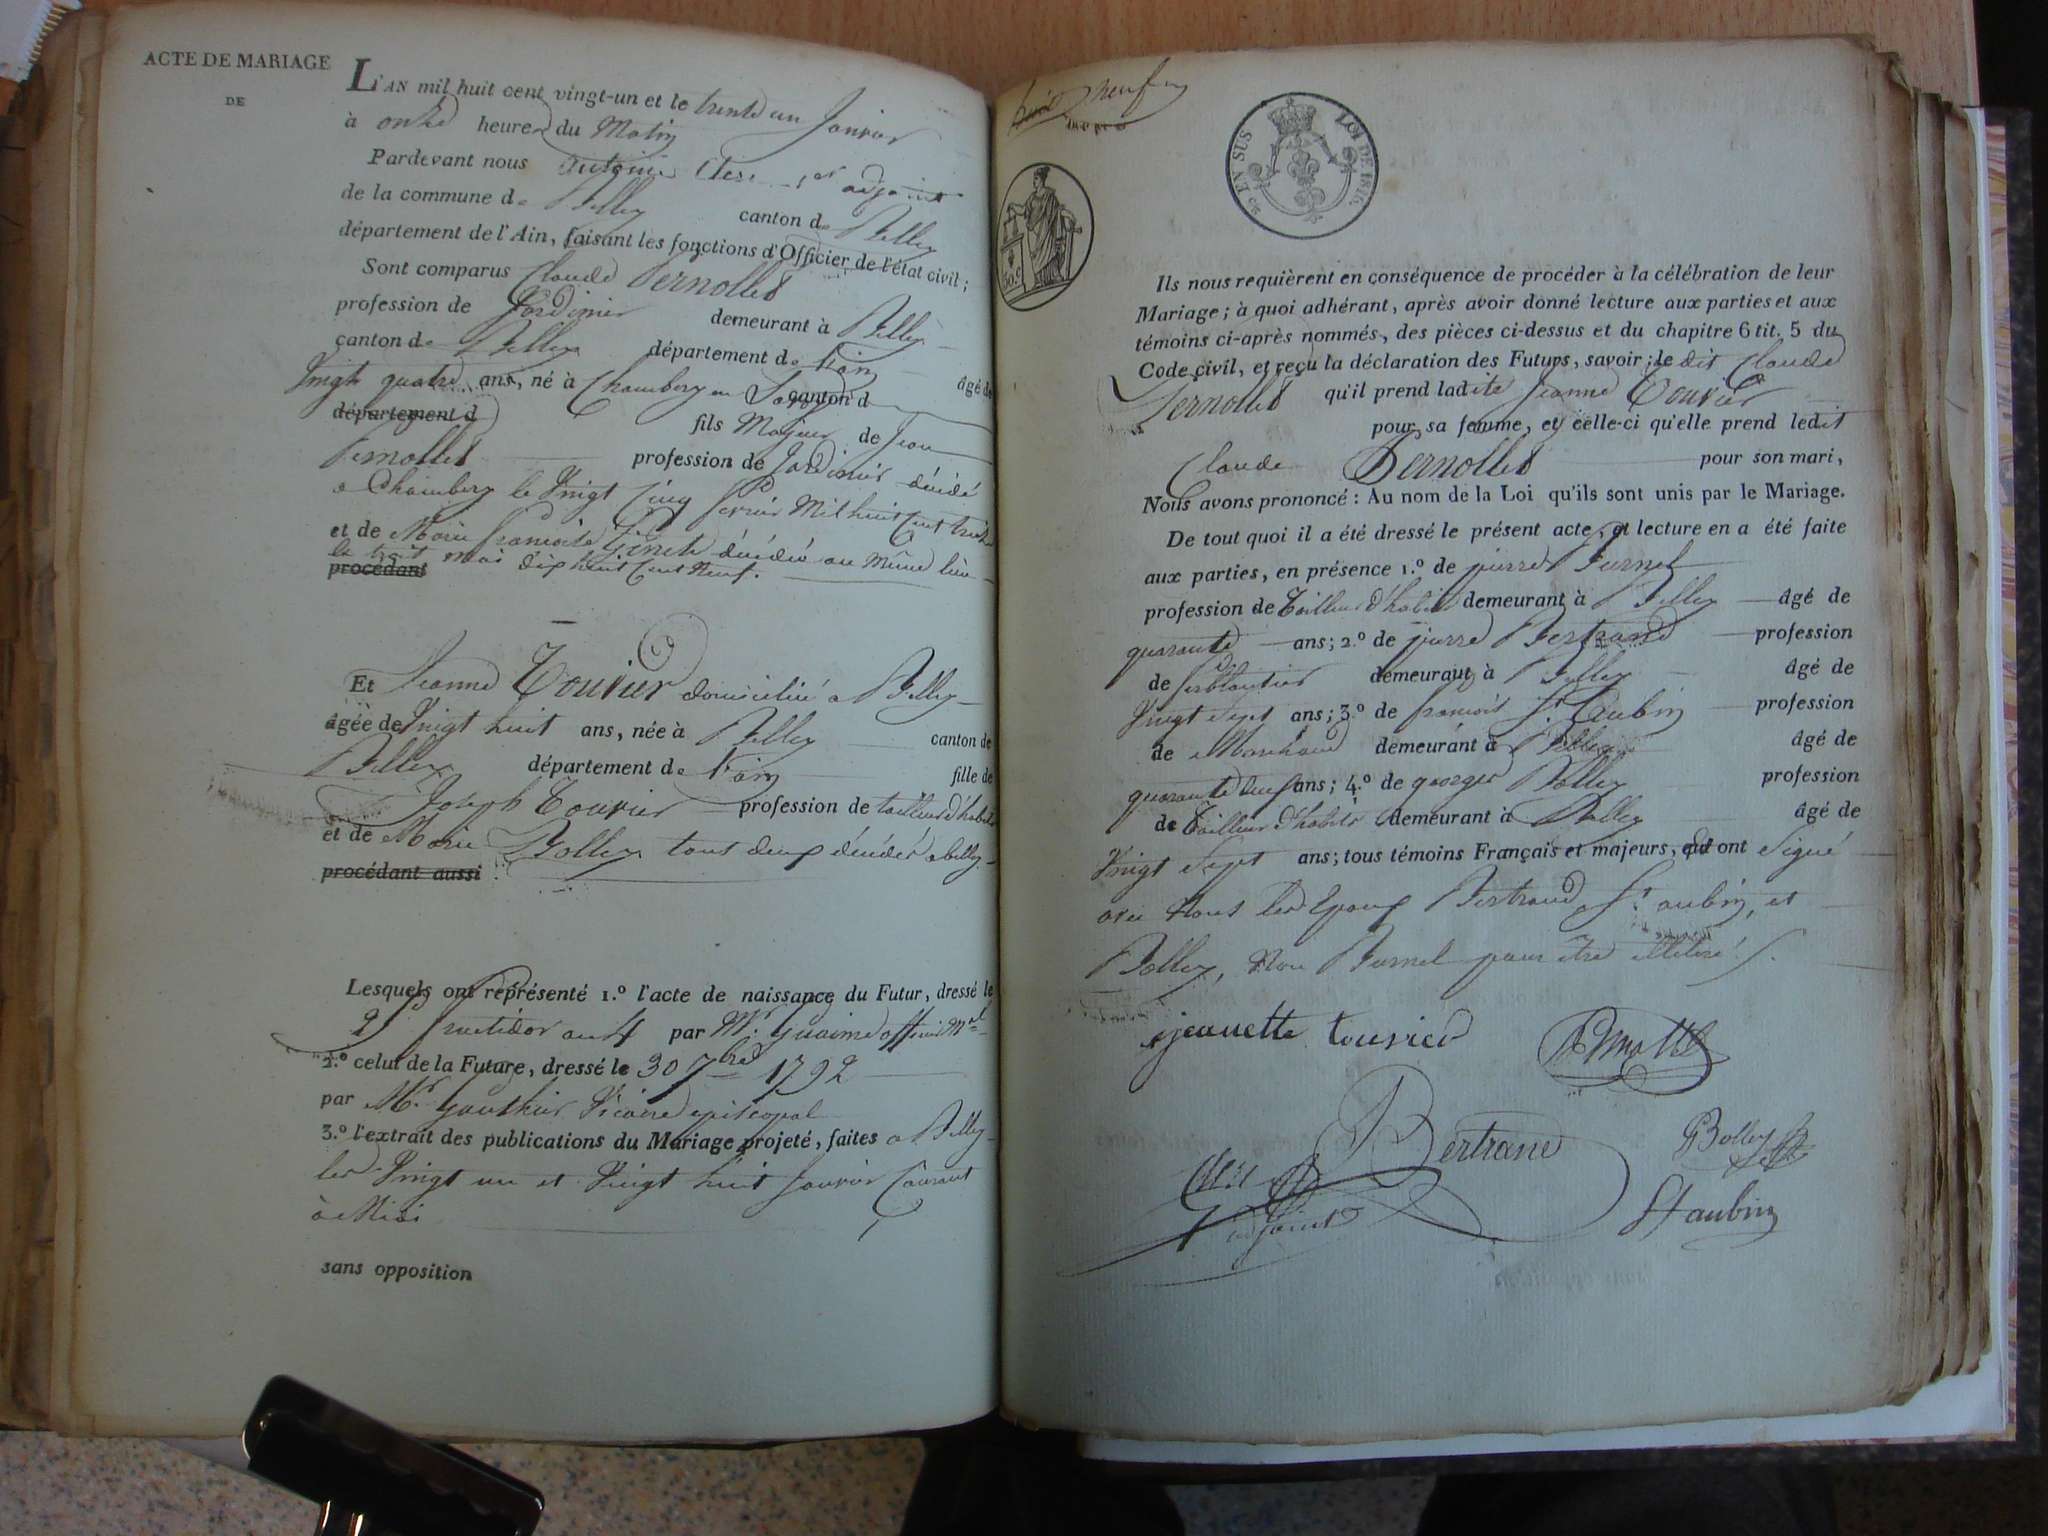 ACTE DE MARIAGE
DE
L'AN mil huit cent vingt-un et le trente un Janvier
à onze heures du Matin
Pardevant nous Antoine 1er adjoint
de la commune de Belley canton de Belley
département de l'Ain, faisant les fonctions d'Officier de l'état civil;
Sont comparus Claude Pernollet
profession de Jardinier demeurant à Belley
canton de Belley département de l'ain âgé de
Vingt quatre ans, né à Chambery en Savoye canton d
département d fils Majeur de Jean
Pernollet profession de Jardinier décédé
a Chambery le Vingt Cinq février Mil huit Cent treize
et de Marie françoise décédée au même lieu
le trois mai dix huit Cent Neuf.
procédant
Et Jeanne Touvier domiciliée a Belley
âgée de Vingt huit ans, née à Belley canton de
Belley département de l'ain fille de
Joseph Touvier profession de tailleur d'habits
et de Marie Bolley tous deux décédés a belley
procédant aussi
Lesquels ont représenté 1.º l'acte de naissance du Futur, dressé le
fructidor an 4 par Mr. Guaime officier Mal
2.º celui de la Future, dressé le 30 7bre 1792
par Mr. Gauthier Vicaire episcopal
3.º l'extrait des publications du Mariage projeté, faites a Belley
les Vingt un et Vingt huit Janvier Courant
à Midi
sans opposition
neuf
EN SUS LOI DE 1816.
50 c
Ils nous requièrent en conséquence de procéder à la célébration de leur
Mariage; à quoi adhérant, après avoir donné lecture aux parties et aux
témoins ci-après nommés, des pièces ci-dessus et du chapitre 6 tit. 5 du
Code civil, et reçu la déclaration des Futurs, savoir; le dit Claude
Pernollet qu'il prend ladite Jeanne Touvier
pour sa femme, et celle-ci qu'elle prend ledit
Claude Pernollet pour son mari,
Nous avons prononcé: Au nom de la Loi qu'ils sont unis par le Mariage.
De tout quoi il a été dressé le présent acte, et lecture en a été faite
aux parties, en présence 1.º de pierre Burnel
profession de Tailleur d'habits demeurant à Belley âgé de
quarante ans; 2.º de pierre Bertrand profession
de ferblantier demeurant à Belley âgé de
Vingt Sept ans; 3.º de françois St. Aubin profession
de Marchand demeurant à Belley âgé de
quarante neuf ans; 4.º de georges Bolley profession
de Tailleur d'habits demeurant à Belley âgé de
Vingt Sept ans; tous témoins Français et majeurs, qui ont Signé
avec Nous les Epoux Bertrand, St. aubin, et
Bolley, Non Burnel pour être illitéré.
jeanette touvier Pernollet
Bertrand Bolley
adjoint St aubin